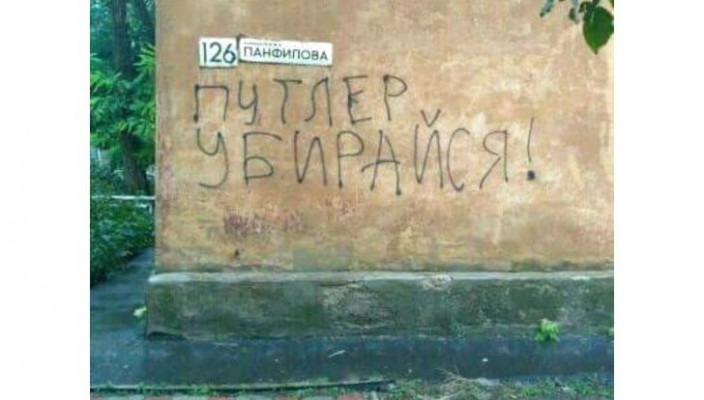 126
ПАНФИЛОВА
ПУТЛЕР
УБИРАЙСЯ!